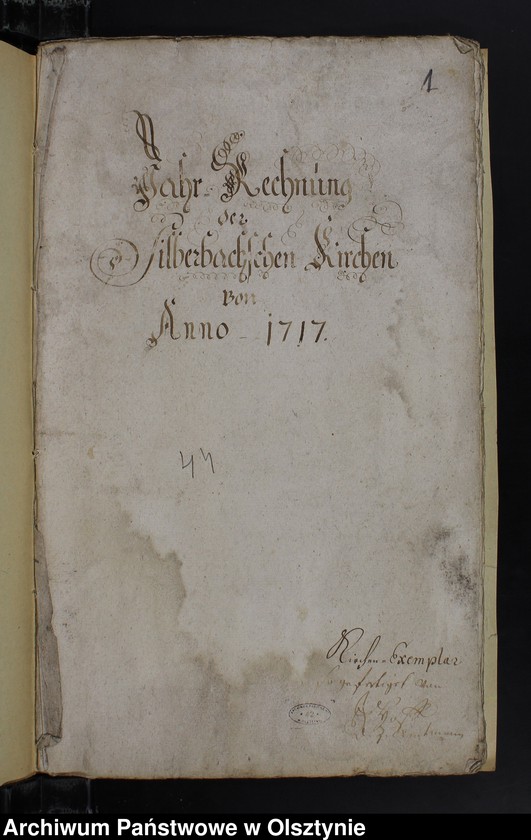 1
Jahr-Rechnung
der
Silberbachschen Kirchen
von
Anno - 1717.
44
Kirchen-Exemplar
von
Archiwum Państwowe w Olsztynie